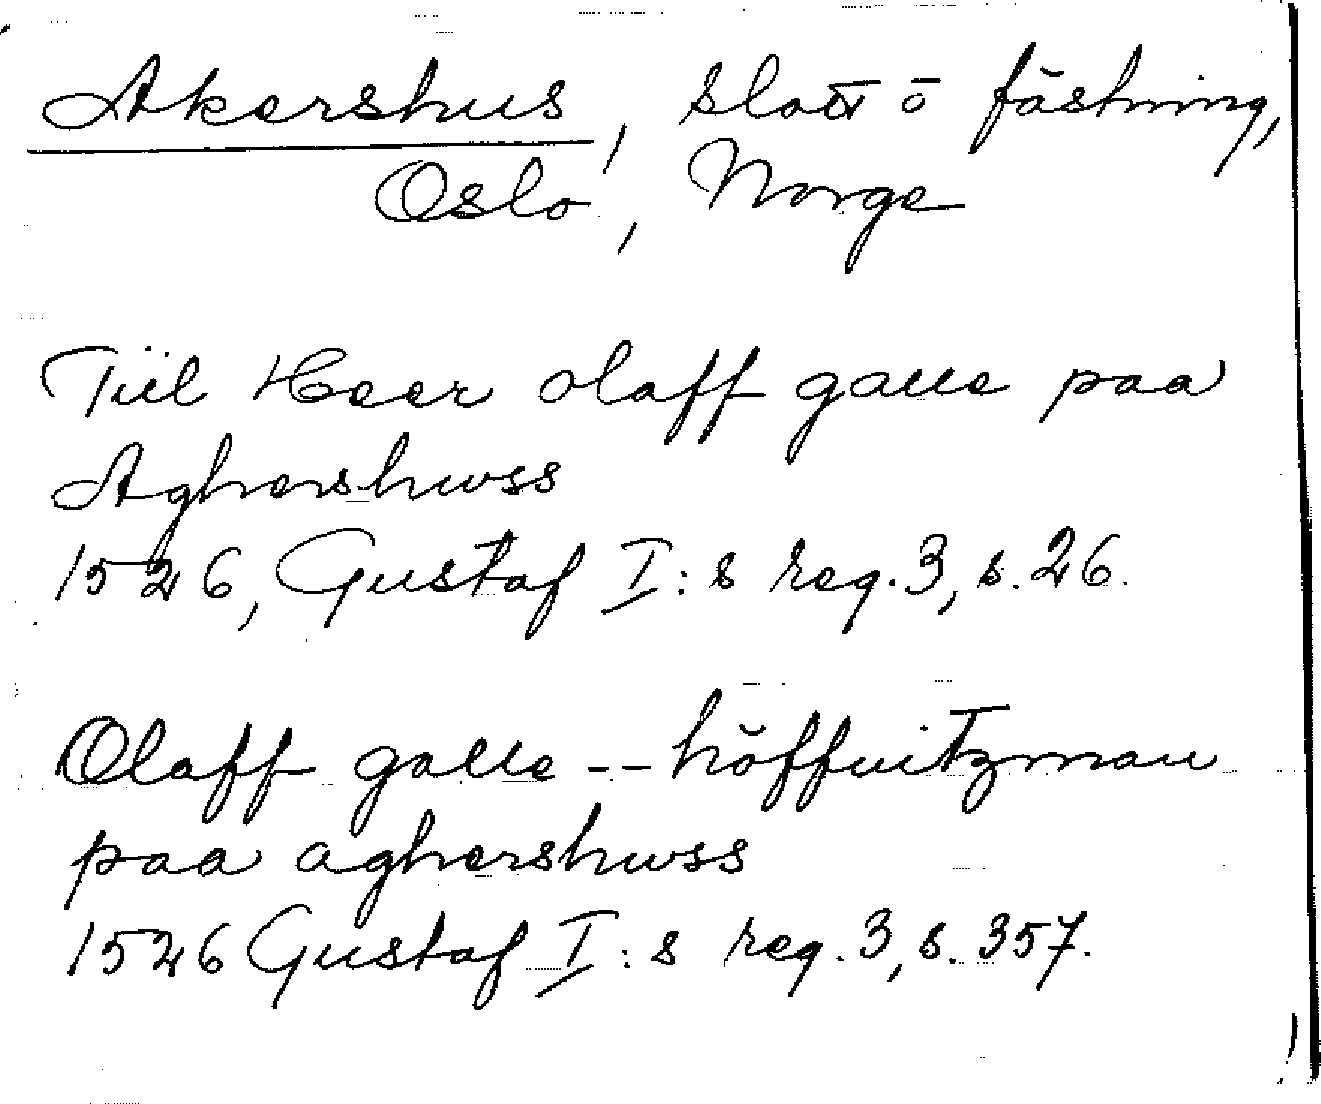 Akershus, slott o fästning,
Oslo, Norge
Tiil Heer olaff galle paa
Aghershwss
1526, Gustaf I:s reg. 3, s. 26.
Olaff galle -- höffuitzman
paa aghershwss
1526 Gustaf I:s reg. 3, s. 357.